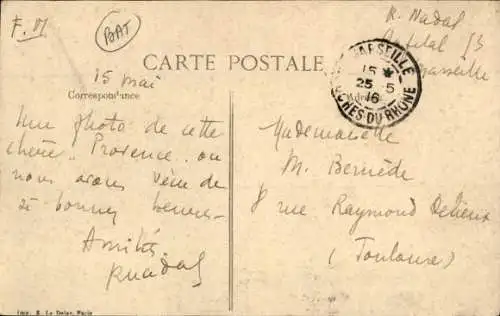 F. M
BAT
R. Nadal
Hopital 73
Marseille
CARTE POSTALE
MARSEILLE
15 *
25 - 5
16
BCHES DU RHONE
15 mai
Correspondance
Une photo de cette
chère "Provence" où
nous avons vécu de
si bonnes heures -
Amitiés
RNadal
Mademoiselle
M. Bernède
8 rue Raymond
(Toulouse)
Imp. E. Le Deley, Paris